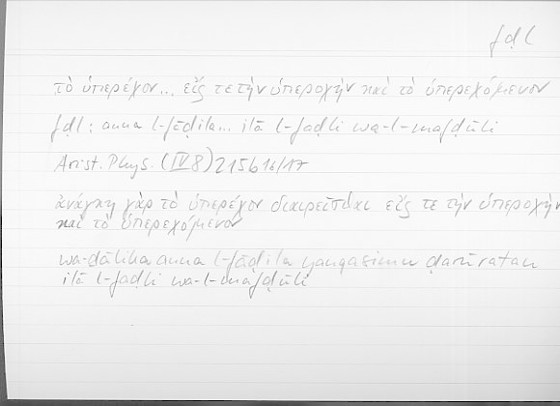 fḍl
τὸ ὑπερέχον... εἴς τε τὴν ὑπεροχὴν καὶ τὸ ὑπερεχόμενον
fḍl: anna l-fāḍila... ilā l-faḍli wa-l-mafḍūli
Arist. Phys. (IV 8) 215b16/17
ἀνάγκη γὰρ τὸ ὑπερέχον διαιρεῖσθαι εἴς τε τὴν ὑπεροχὴν
καὶ τὸ ὑπερεχόμενον
wa-ḏālika anna l-fāḍila yanqasimu ḍarūratan
ilā l-faḍli wa-l-mafḍūli